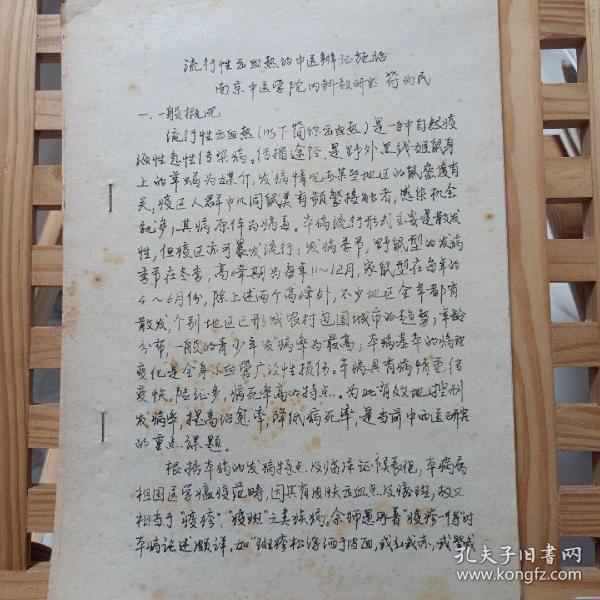 流行性出血热的中医辨证施治
南京中医学院内科教研室 符为民
一、一般概况
流行性出血热(以下简称出血热)是一种自然疫
源性急性传染病。传播途径,是野外黑线姬鼠身
上的革螨为媒介,发病情况与某些地区的鼠密度有
关,疫区人群中凡同鼠类有频繁接触者,感染机会
就多,其病原体为病毒。本病流行形式主要是散发
性,但疫区亦可暴发流行;发病季节,野鼠型的发病
季节在冬季,高峰期为每年11~12月,家鼠型在每年的
4~6月份,除上述两个高峰外,不少地区全年都有
散发,个别地区已形成农村包围城市的趋势;年龄
分节,一般的青少年发病率为最高;本病基本的病理
变化是全身小血管广泛性损伤。本病具有病情重,传
变快,险证多,病死率高的特点。为此,有效地控制
发病率,提高治愈率,降低病死率,是当前中西医研究
的重点课题。
根据本病的发病特点及临床证候表现,本病属
祖国医学瘟疫范畴,因其有皮肤出血点及瘀斑,故又
相当于“疫疹”、“疫斑”之类疾病。余师愚所著“疫疹一得”对
本病论述颇详,如“斑疹松浮洒于皮面,或红或赤,或紫或
孔夫子旧书网
www.kongfz.com